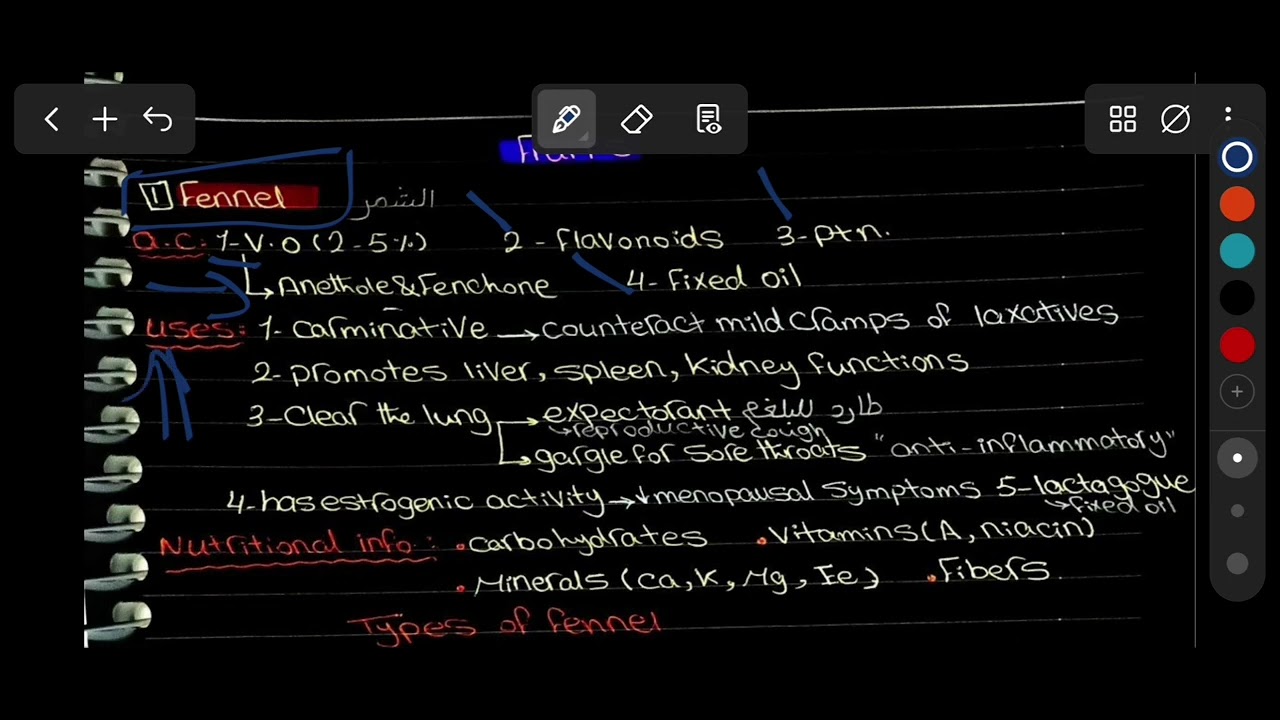 1 Fennel الشمر
a.c: 1-V.O (2-5%) 2-flavonoids 3-Ptn.
Anethole & Fenchone 4-Fixed oil
uses: 1-carminative → counteract mild cramps of laxatives
2-promotes liver, spleen, kidney functions
3-Clear the lung → expectorant طارد للبلغم
reproductive cough
gargle for sore throats "anti-inflammatory"
4-has estrogenic activity → ↓ menopausal symptoms 5-lactagogue
fixed oil
Nutritional info: • carbohydrates • Vitamins (A, niacin)
• Minerals (Ca, K, Mg, Fe) • Fibers.
Types of fennel